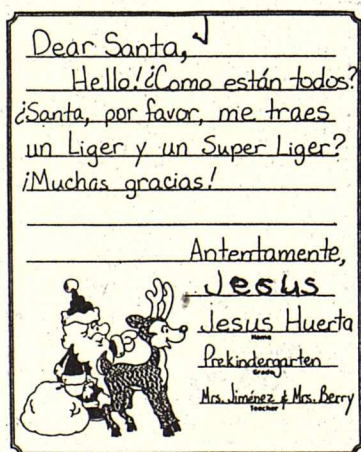 Dear Santa,
Hello! ¿Como están todos?
¿Santa, por favor, me traes
un Liger y un Super Liger?
¡Muchas gracias!
Antentamente,
Jesus
Jesus Huerta
Name
Prekindergarten
Grade
Mrs. Jiménez & Mrs. Berry
Teacher